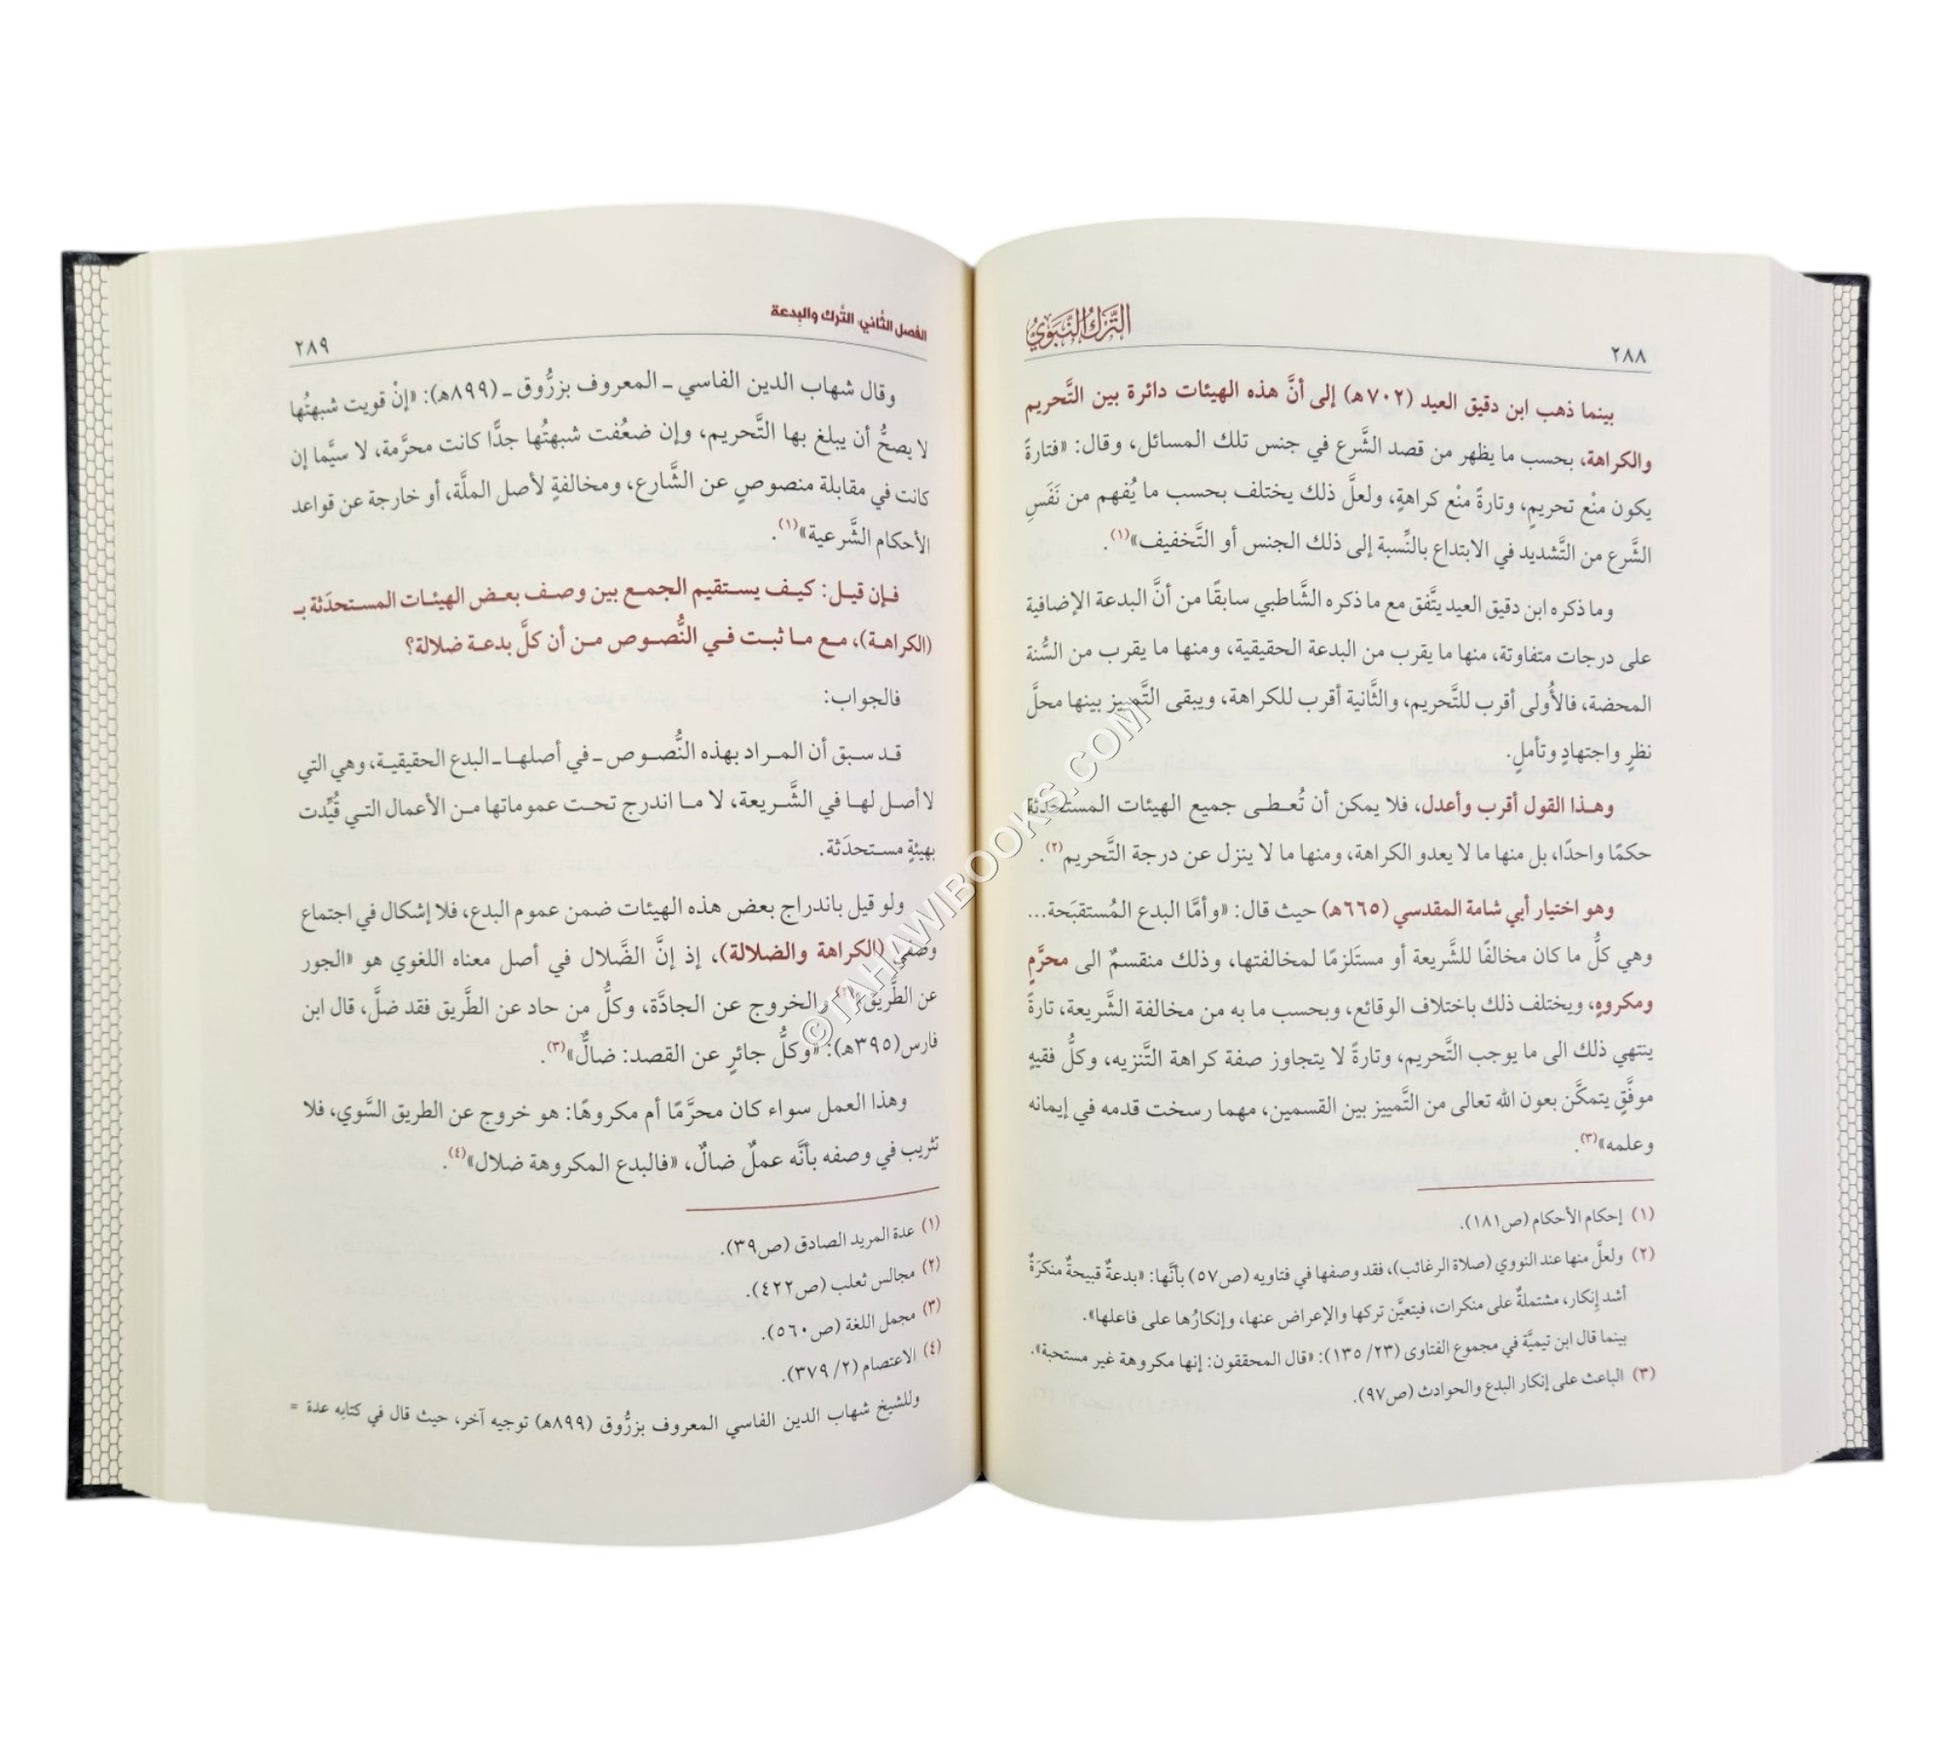 ٢٨٨
التَّركُ النَّبَوِيُّ
بينما ذهب ابن دقيق العيد (٧٠٢هـ) إلى أنَّ هذه الهيئات دائرة بين التَّحريم
والكراهة، بحسب ما يظهر من قصد الشَّرع في جنس تلك المسائل، وقال: «فتارةً
يكون منْع تحريمٍ، وتارةً منْع كراهةٍ، ولعلَّ ذلك يختلف بحسب ما يُفهم من نَفَسِ
الشَّرع من التَّشديد في الابتداع بالنِّسبة إلى ذلك الجنس أو التَّخفيف»(١).
وما ذكره ابن دقيق العيد يتَّفق مع ما ذكره الشَّاطبي سابقًا من أنَّ البدعة الإضافية
على درجات متفاوتة، منها ما يقرب من البدعة الحقيقية، ومنها ما يقرب من السُّنة
المحضة، فالأُولى أقرب للتَّحريم، والثَّانية أقرب للكراهة، ويبقى التَّمييز بينها محلَّ
نظرٍ واجتهادٍ وتأملٍ.
وهذا القول أقرب وأعدل، فلا يمكن أن تُعطى جميع الهيئات المستحدَثة
حكمًا واحدًا، بل منها ما لا يعدو الكراهة، ومنها ما لا ينزل عن درجة التَّحريم(٢).
وهو اختيار أبي شامة المقدسي (٦٦٥هـ) حيث قال: «وأمَّا البدع المُستقبَحة...
وهي كلُّ ما كان مخالفًا للشَّريعة أو مستَلزمًا لمخالفتها، وذلك منقسمٌ الى محرَّمٍ
ومكروهٍ، ويختلف ذلك باختلاف الوقائع، وبحسب ما به من مخالفة الشَّريعة، تارةً
ينتهي ذلك الى ما يوجب التَّحريم، وتارةً لا يتجاوز صفة كراهة التَّنزيه، وكلُّ فقيهٍ
موفَّقٍ يتمكَّن بعون الله تعالى من التَّمييز بين القسمين، مهما رسخت قدمه في إيمانه
وعلمه»(٣).
(١) إحكام الأحكام (ص١٨١).
(٢) ولعلَّ منها عند النووي (صلاة الرغائب)، فقد وصفها في فتاويه (ص٥٧) بأنَّها: «بدعةٌ قبيحةٌ منكرَةٌ
أشد إنكار، مشتملةٌ على منكرات، فيتعيَّن تركها والإعراض عنها، وإنكارُها على فاعلها».
بينما قال ابن تيميَّة في مجموع الفتاوى (٢٣/ ١٣٥): «قال المحققون: إنها مكروهة غير مستحبة».
(٣) الباعث على إنكار البدع والحوادث (ص٩٧).
الفصل الثَّاني، التَّرك والبِدعة
٢٨٩
وقال شهاب الدين الفاسي ـ المعروف بزرُّوق ـ (٨٩٩هـ): «إنْ قويت شبهتُها
لا يصحُّ أن يبلغ بها التَّحريم، وإن ضعُفت شبهتُها جدًّا كانت محرَّمة، لا سيَّما إن
كانت في مقابلة منصوصٍ عن الشَّارع، ومخالفةٍ لأصل الملَّة، أو خارجة عن قواعد
الأحكام الشَّرعية»(١).
فإن قيل: كيف يستقيم الجمع بين وصف بعض الهيئات المستحدَثة بـ
(الكراهة)، مع ما ثبت في النُّصوص من أن كلَّ بدعة ضلالة؟
فالجواب:
قد سبق أن المراد بهذه النُّصوص ـ في أصلها ـ البدع الحقيقية، وهي التي
لا أصل لها في الشَّريعة، لا ما اندرج تحت عموماتها من الأعمال التي قُيِّدت
بهيئةٍ مستحدَثة.
ولو قيل باندراج بعض هذه الهيئات ضمن عموم البدع، فلا إشكال في اجتماع
وصْفَي (الكراهة والضلالة)، إذ إنَّ الضَّلال في أصل معناه اللغوي هو «الجور
عن الطَّريق»(٢) والخروج عن الجادَّة، وكلُّ من حاد عن الطَّريق فقد ضلَّ، قال ابن
فارس(٣٩٥هـ): «وكلُّ جائرٍ عن القصد: ضالٌّ»(٣).
وهذا العمل سواء كان محرَّمًا أم مكروهًا: هو خروج عن الطريق السَّوي، فلا
تثريب في وصفه بأنَّه عملٌ ضالٌ، «فالبدع المكروهة ضلال»(٤).
(١) عدة المريد الصادق (ص٣٩).
(٢) مجالس ثعلب (ص٤٢٢).
(٣) مجمل اللغة (ص٥٦٠).
(٤) الاعتصام (٢/ ٣٧٩).
وللشيخ شهاب الدين الفاسي المعروف بزرُّوق (٨٩٩هـ) توجيه آخر، حيث قال في كتابه عدة =
©TAHAWIBOOKS.COM